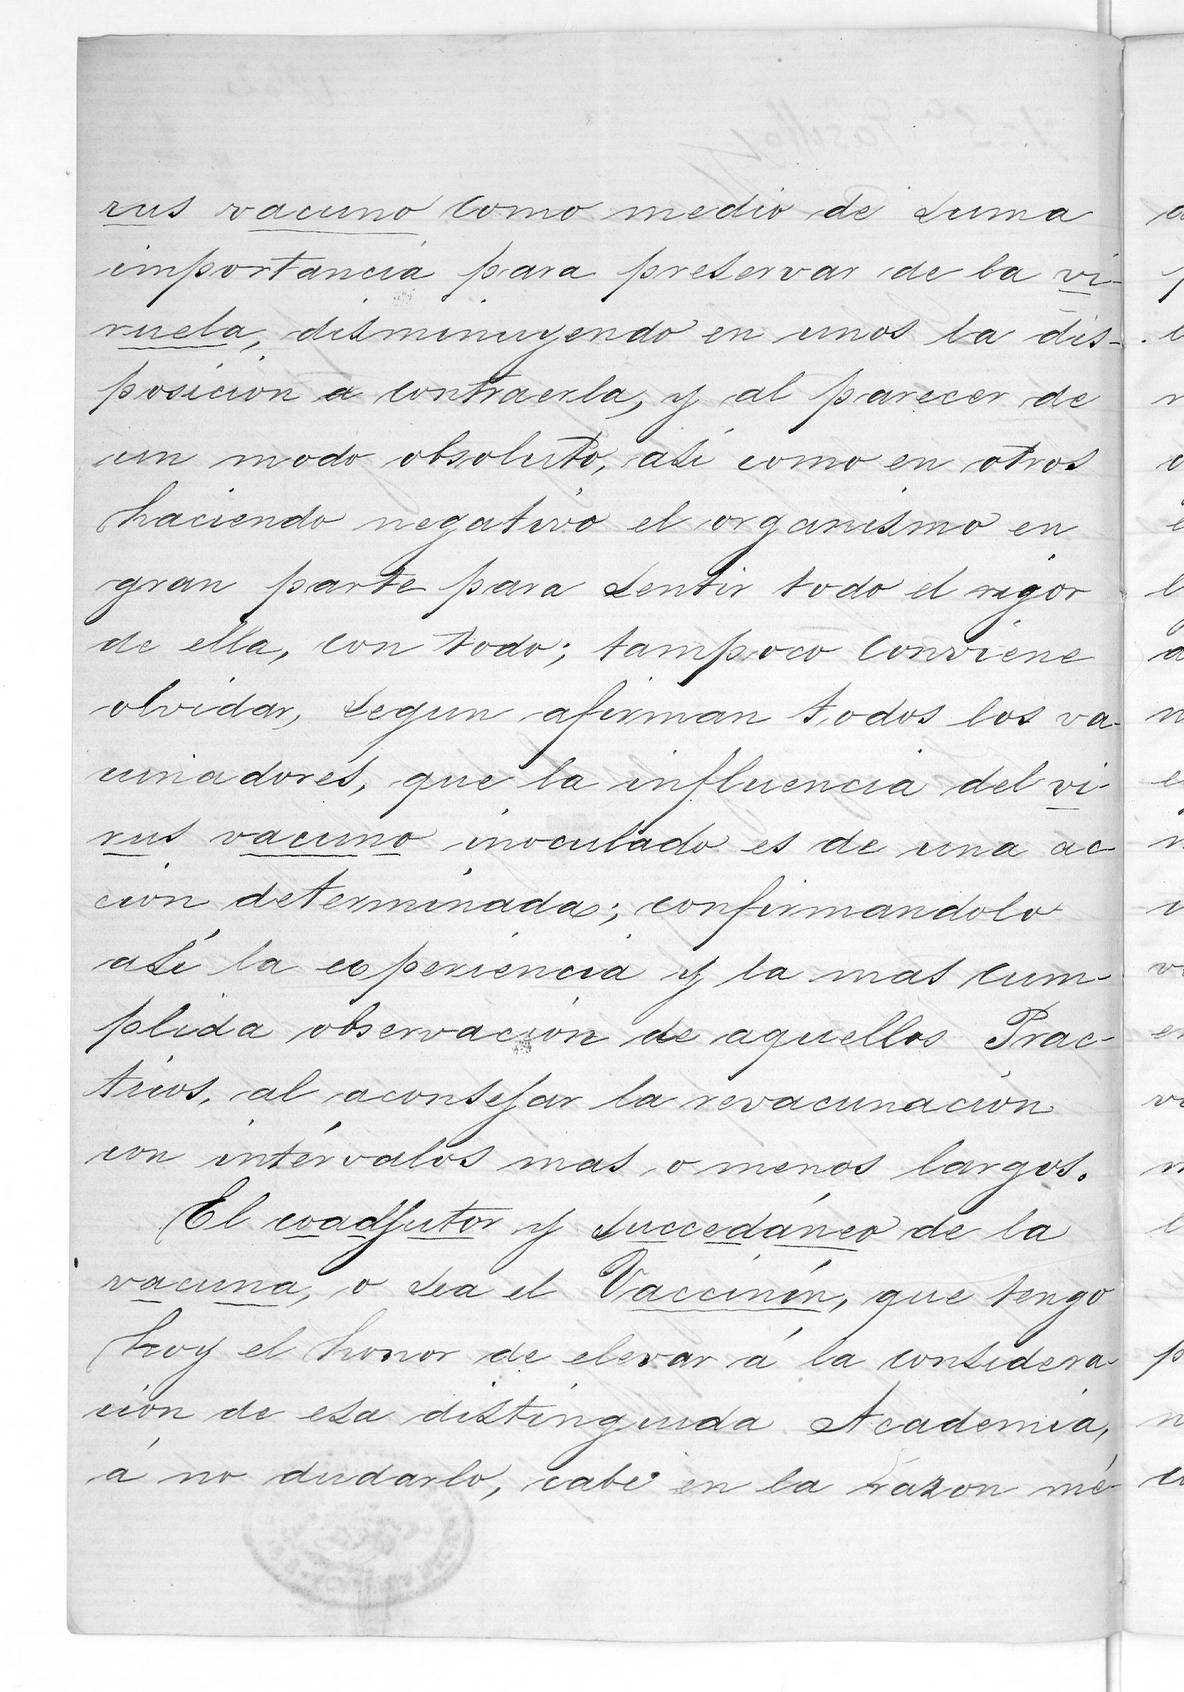 rus vacuno como medio de suma
importancia para preservar de la vi-
ruela, disminuyendo en unos la dis-
posicion a contraerla, y al parecer de
un modo absoluto, asi como en otros
haciendo negativo el organismo en
gran parte para sentir todo el rigor
de ella, con todo; tampoco conviene
olvidar, segun afirman todos los va-
cunadores, que la influencia del vi-
rus vacuno inoculado es de una ac-
cion determinada; confirmandolo
asi la experiencia y la mas cum-
plida observacion de aquellos Prac-
ticos, al aconsejar la revacunacion
con intérvalos mas o menos largos.
El coadjutor y succedáneo de la
vacuna, o sea el Vaccinín, que tengo
hoy el honor de elevar á la considera-
cion de esa distinguida Academia,
á no dudarlo, cabe en la razon mé-